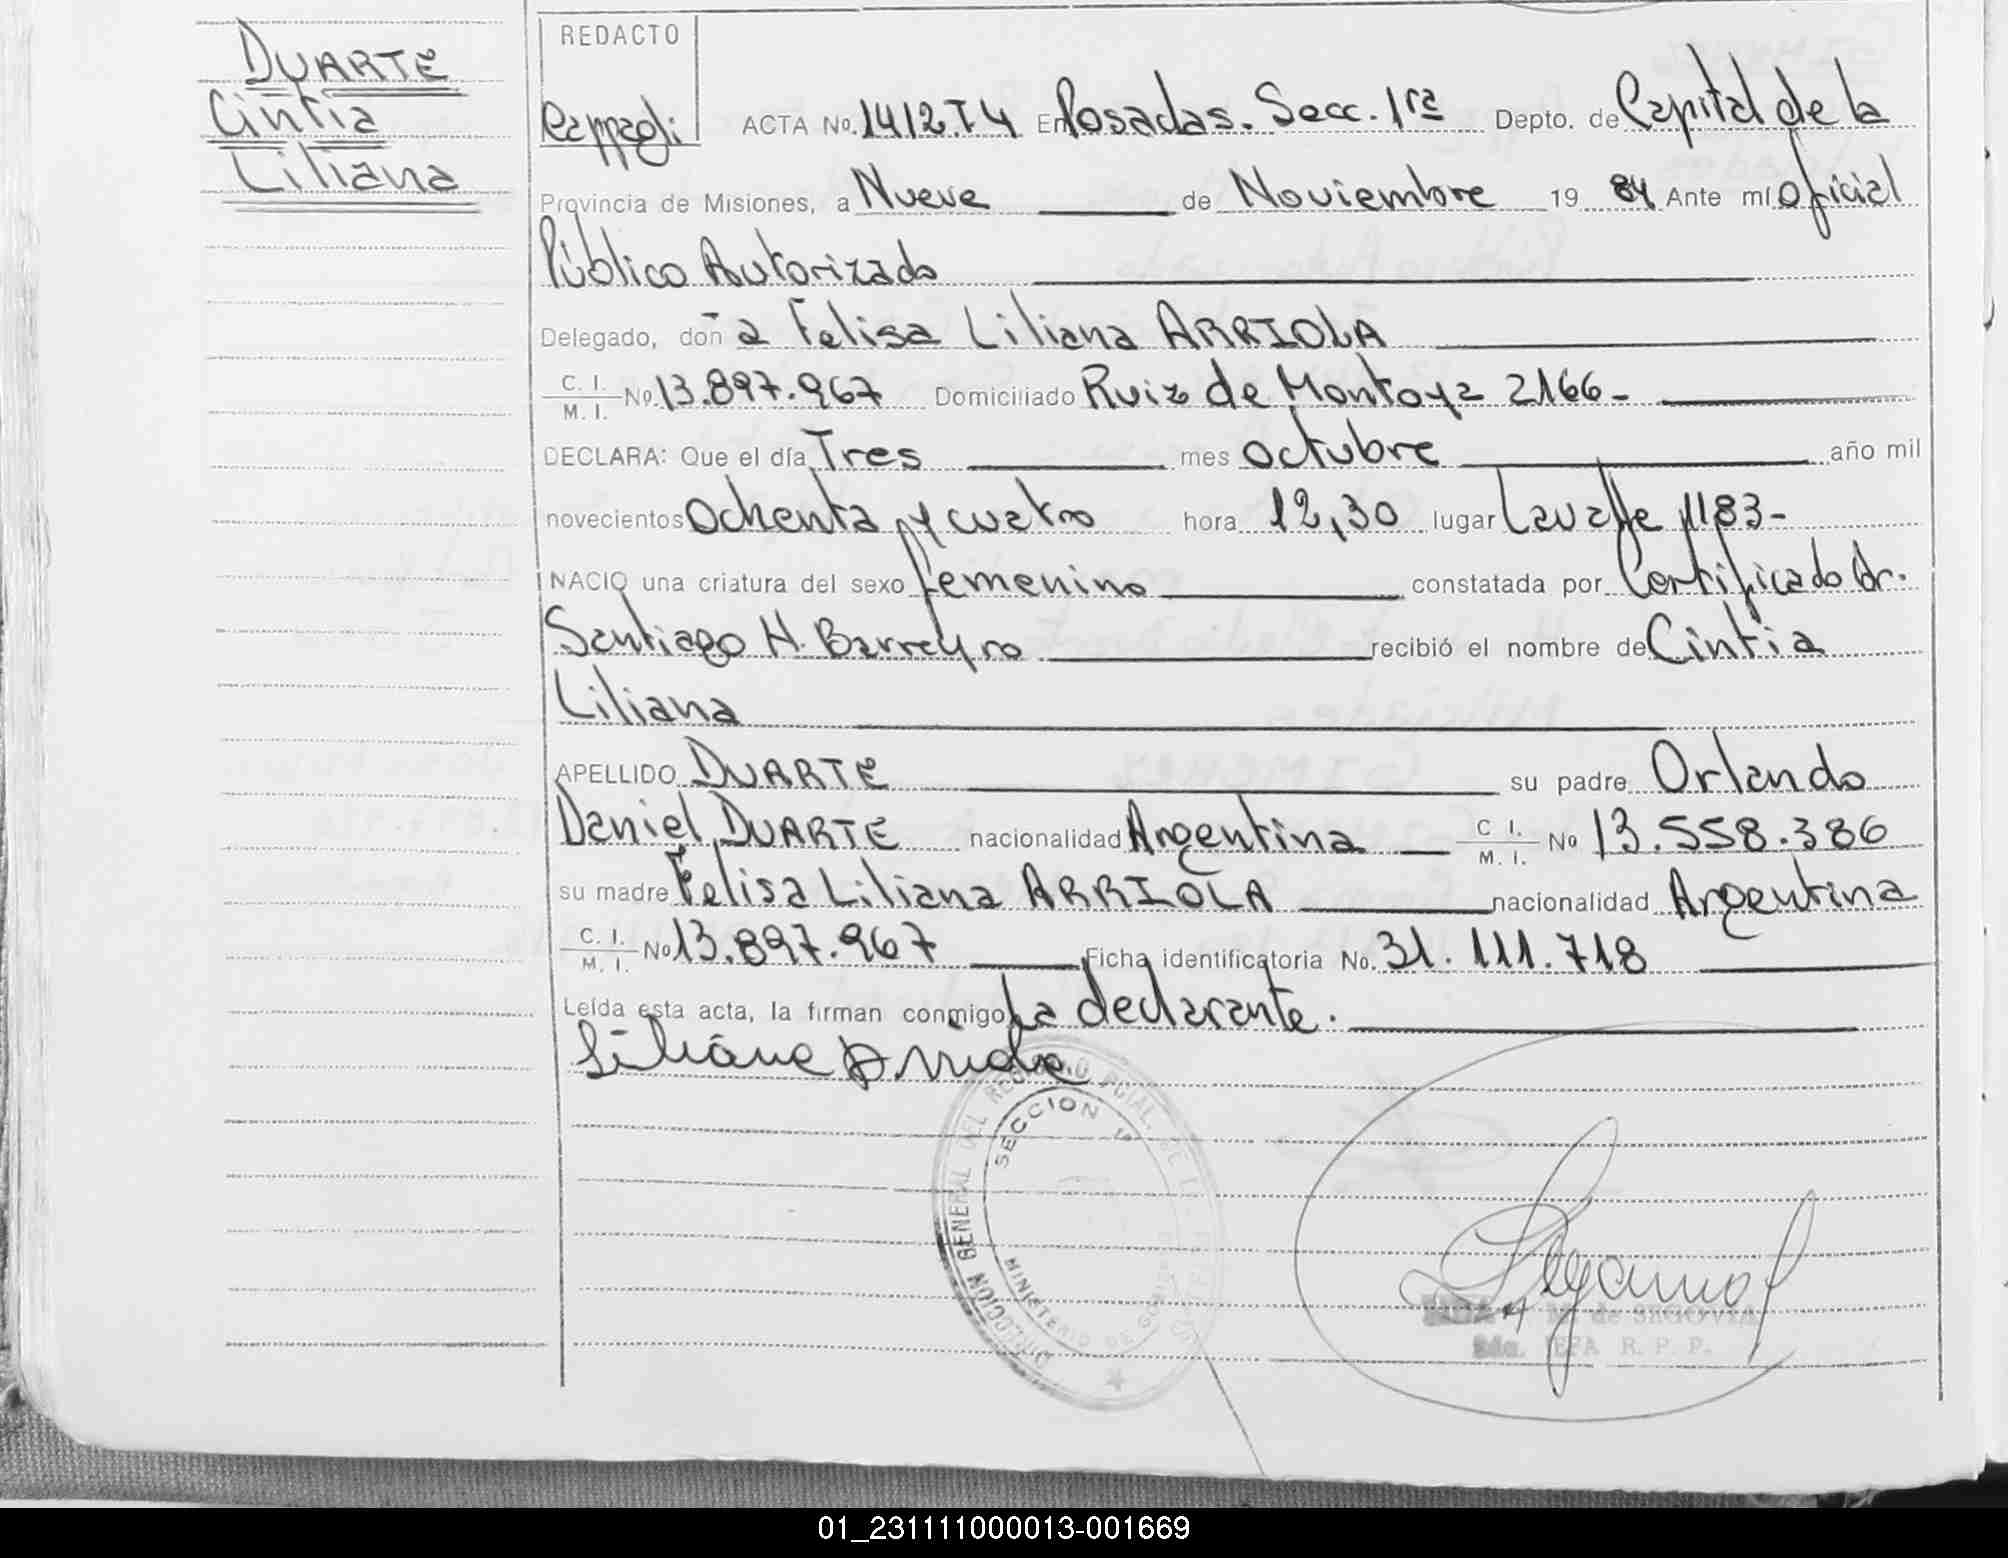 DUARTE
Cintia
Liliana
REDACTO
ACTA No. 1412.T4 En Posadas. Secc. 1ra Depto. de Capital de la
Provincia de Misiones, a Nueve de Noviembre 19 84 Ante mí Oficial
Público Autorizado
Delegado, doñ a Felisa Liliana ARRIOLA
C. I. / M. I. No. 13.897.967 Domiciliado Ruiz de Montoya 2166-
DECLARA: Que el día Tres mes octubre año mil
novecientos Ochenta y cuatro hora 12,30 lugar Lavalle 1183-
NACIO una criatura del sexo femenino constatada por Certificado Dr.
Santiago H. Barreyro recibió el nombre de Cintia
Liliana
APELLIDO DUARTE su padre Orlando
Daniel DUARTE nacionalidad Argentina C I. / M. I. No 13.558.386
su madre Felisa Liliana ARRIOLA nacionalidad Argentina
C. I. / M. I. No 13.897.967 Ficha identificatoria No. 31.111.718
Leída esta acta, la firman conmigo La declarante.
Liliana Arriola
DIRECCION GENERAL DEL REGISTRO PCIAL. DE LAS PERSONAS
SECCION 1a
MINISTERIO DE GOBIERNO
M. de SEGOVIA
2da. JEFA R. P. P.
01_231111000013-001669